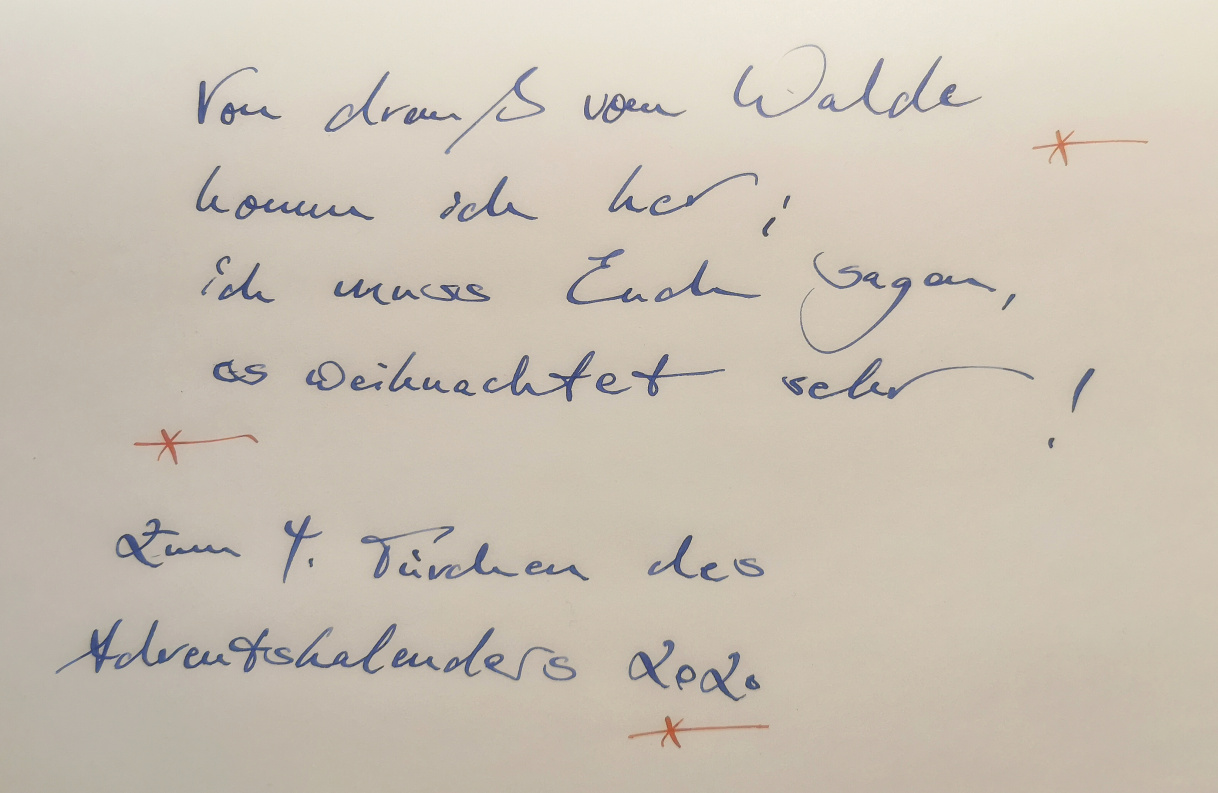 Von drauß vom Walde
komm ich her;
ich muss Euch sagen,
es weihnachtet sehr!
Zum 4. Türchen des
Adventskalenders 2020